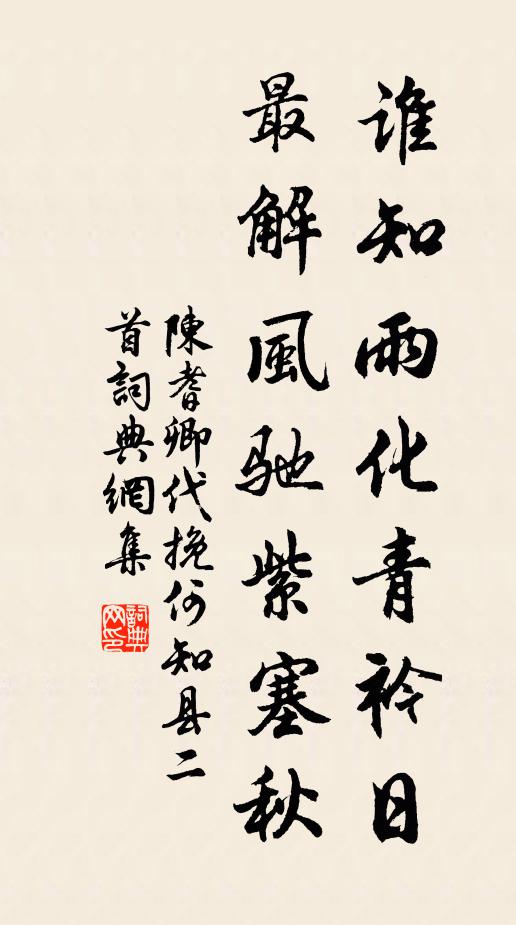 誰知雨化青衿日
最解風馳紫塞秋
陳耆卿代挽何知县二
首詞典網集
詞典
网印